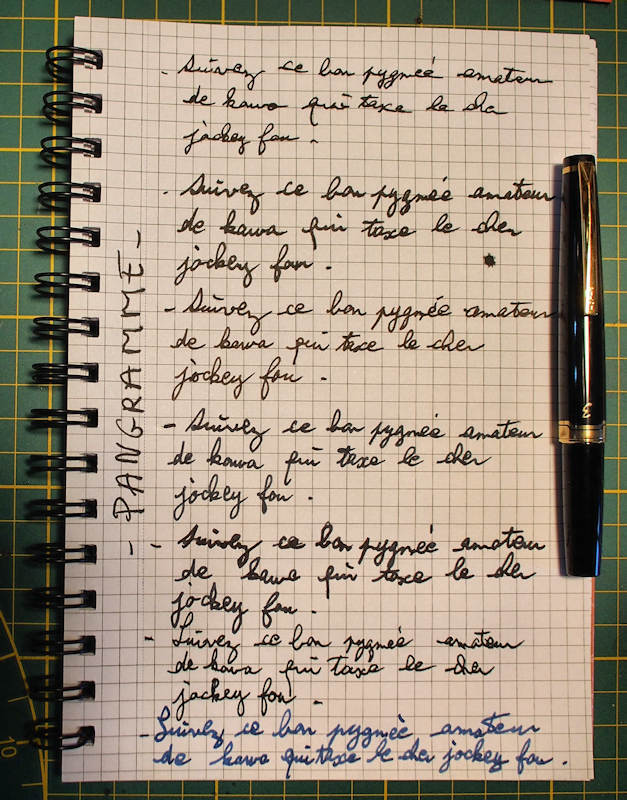 - PANGRAMME -
. Suivez ce bon pygmée amateur
de kawa qui taxe le cher
jockey fou .
. Suivez ce bon pygmée amateur
de kawa qui taxe le cher
jockey fou .
- Suivez ce bon pygmée amateur
de kawa qui taxe le cher
jockey fou .
- Suivez ce bon pygmée amateur
de kawa qui taxe le cher
jockey fou .
- Suivez ce bon pygmée amateur
de kawa qui taxe le cher
jockey fou .
- Suivez ce bon pygmée amateur
de kawa qui taxe le cher
jockey fou .
- Suivez ce bon pygmée amateur
de kawa qui taxe le cher jockey fou .
10